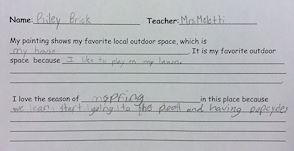 Name: Riley Brick Teacher: Mrs Meletti
My painting shows my favorite local outdoor space, which is
my house. It is my favorite outdoor
space because I like to play on my lawn.
I love the season of spring in this place because
we can start going to the pool and having popcycles